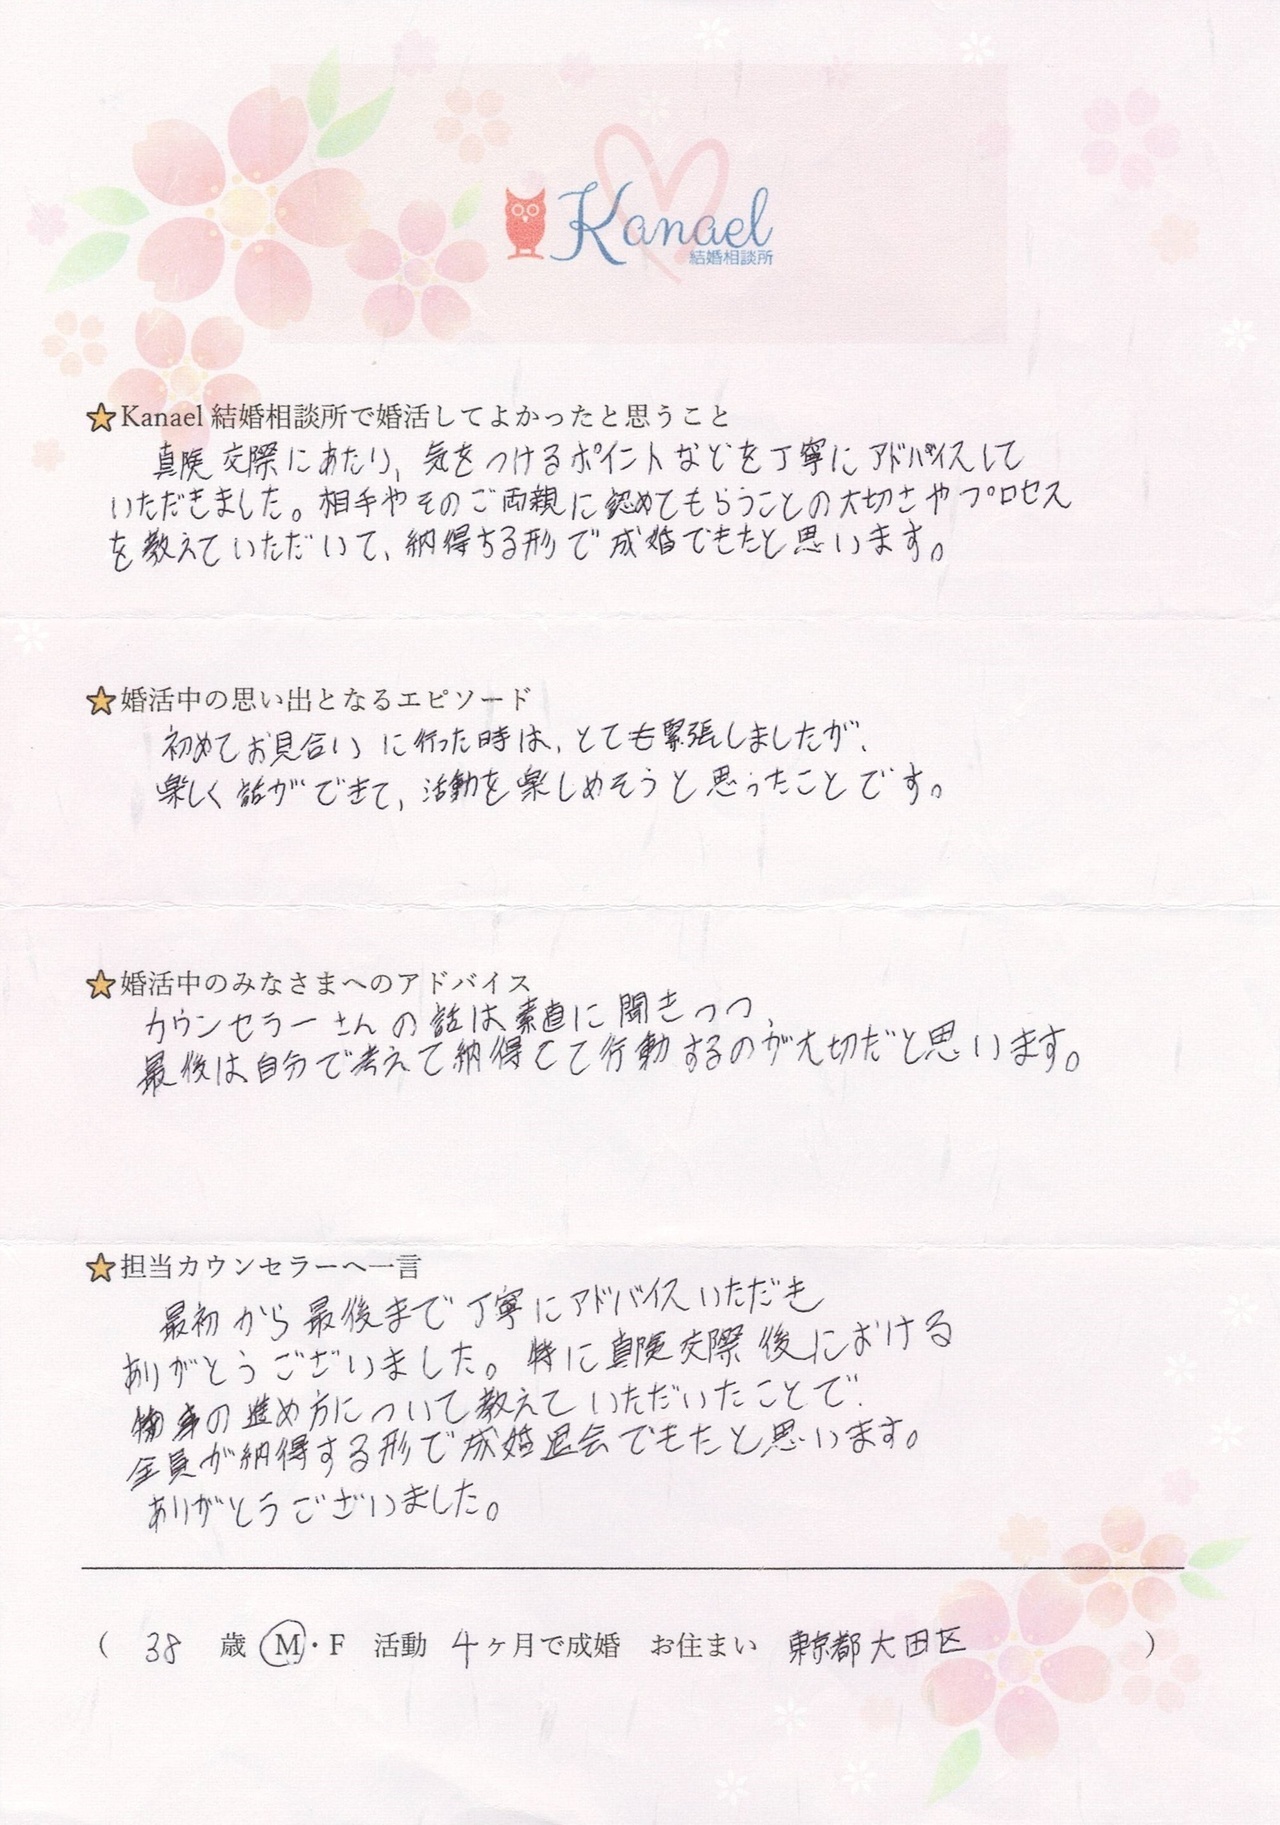 Kanael
結婚相談所
Kanael 結婚相談所で婚活してよかったと思うこと
真剣交際にあたり、気をつけるポイントなどを丁寧にアドバイスして
いただきました。相手やそのご両親に認めてもらうことの大切さやプロセス
を教えていただいて、納得する形で成婚できたと思います。
婚活中の思い出となるエピソード
初めてお見合いに行った時は、とても緊張しましたが、
楽しく話ができて、活動を楽しめそうと思ったことです。
婚活中のみなさまへのアドバイス
カウンセラーさんの話は素直に聞きつつ、
最後は自分で考えて納得して行動するのが大切だと思います。
担当カウンセラーへ一言
最初から最後まで丁寧にアドバイスいただき
ありがとうございました。特に真剣交際後における
物事の進め方について教えていただいたことで、
全員が納得する形で成婚退会できたと思います。
ありがとうございました。
( 38 歳 M・F 活動 4ヶ月で成婚 お住まい 東京都大田区 )